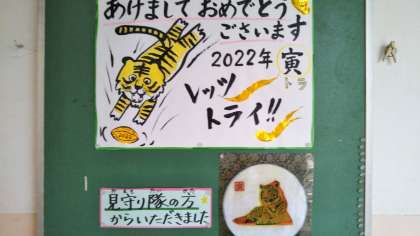 あけまして おめでとう
ございます
2022年 寅
トラ
レッツ
トライ!!
見守り隊の方
からいただきました